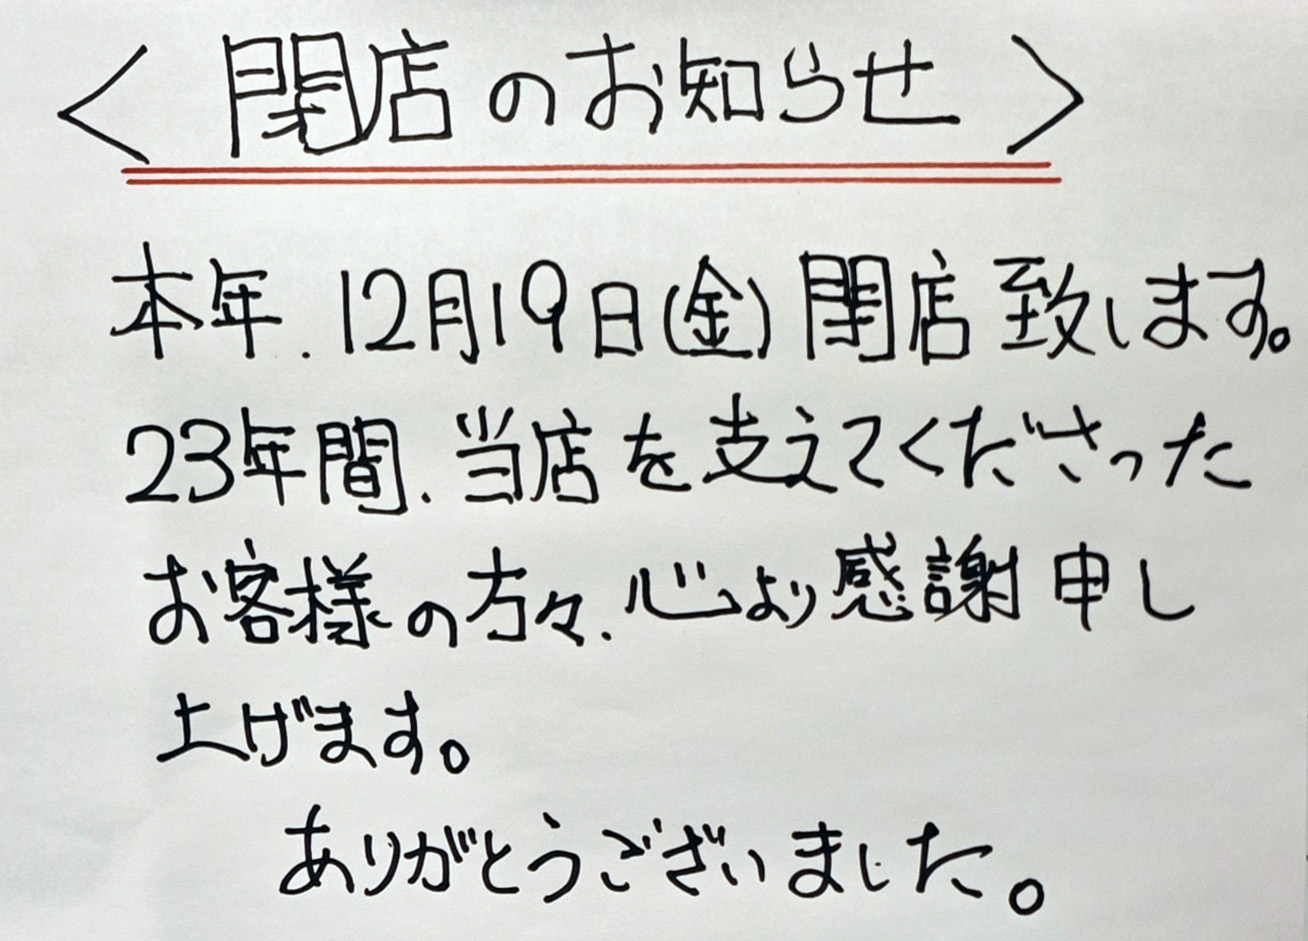 <閉店のお知らせ>
本年.12月19日(金)閉店致します。
23年間.当店を支えてくださった
お客様の方々.心より感謝申し
上げます。
ありがとうございました。